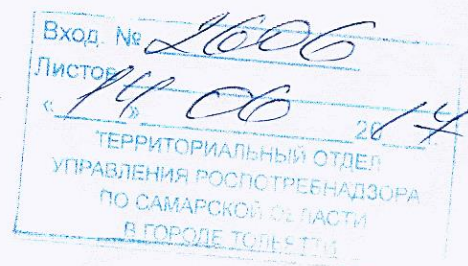 Вход. № 2606
Листов
«14» 06 2017
ТЕРРИТОРИАЛЬНЫЙ ОТДЕЛ
УПРАВЛЕНИЯ РОСПОТРЕБНАДЗОРА
ПО САМАРСКОЙ ОБЛАСТИ
В ГОРОДЕ ТОЛЬЯТТИ